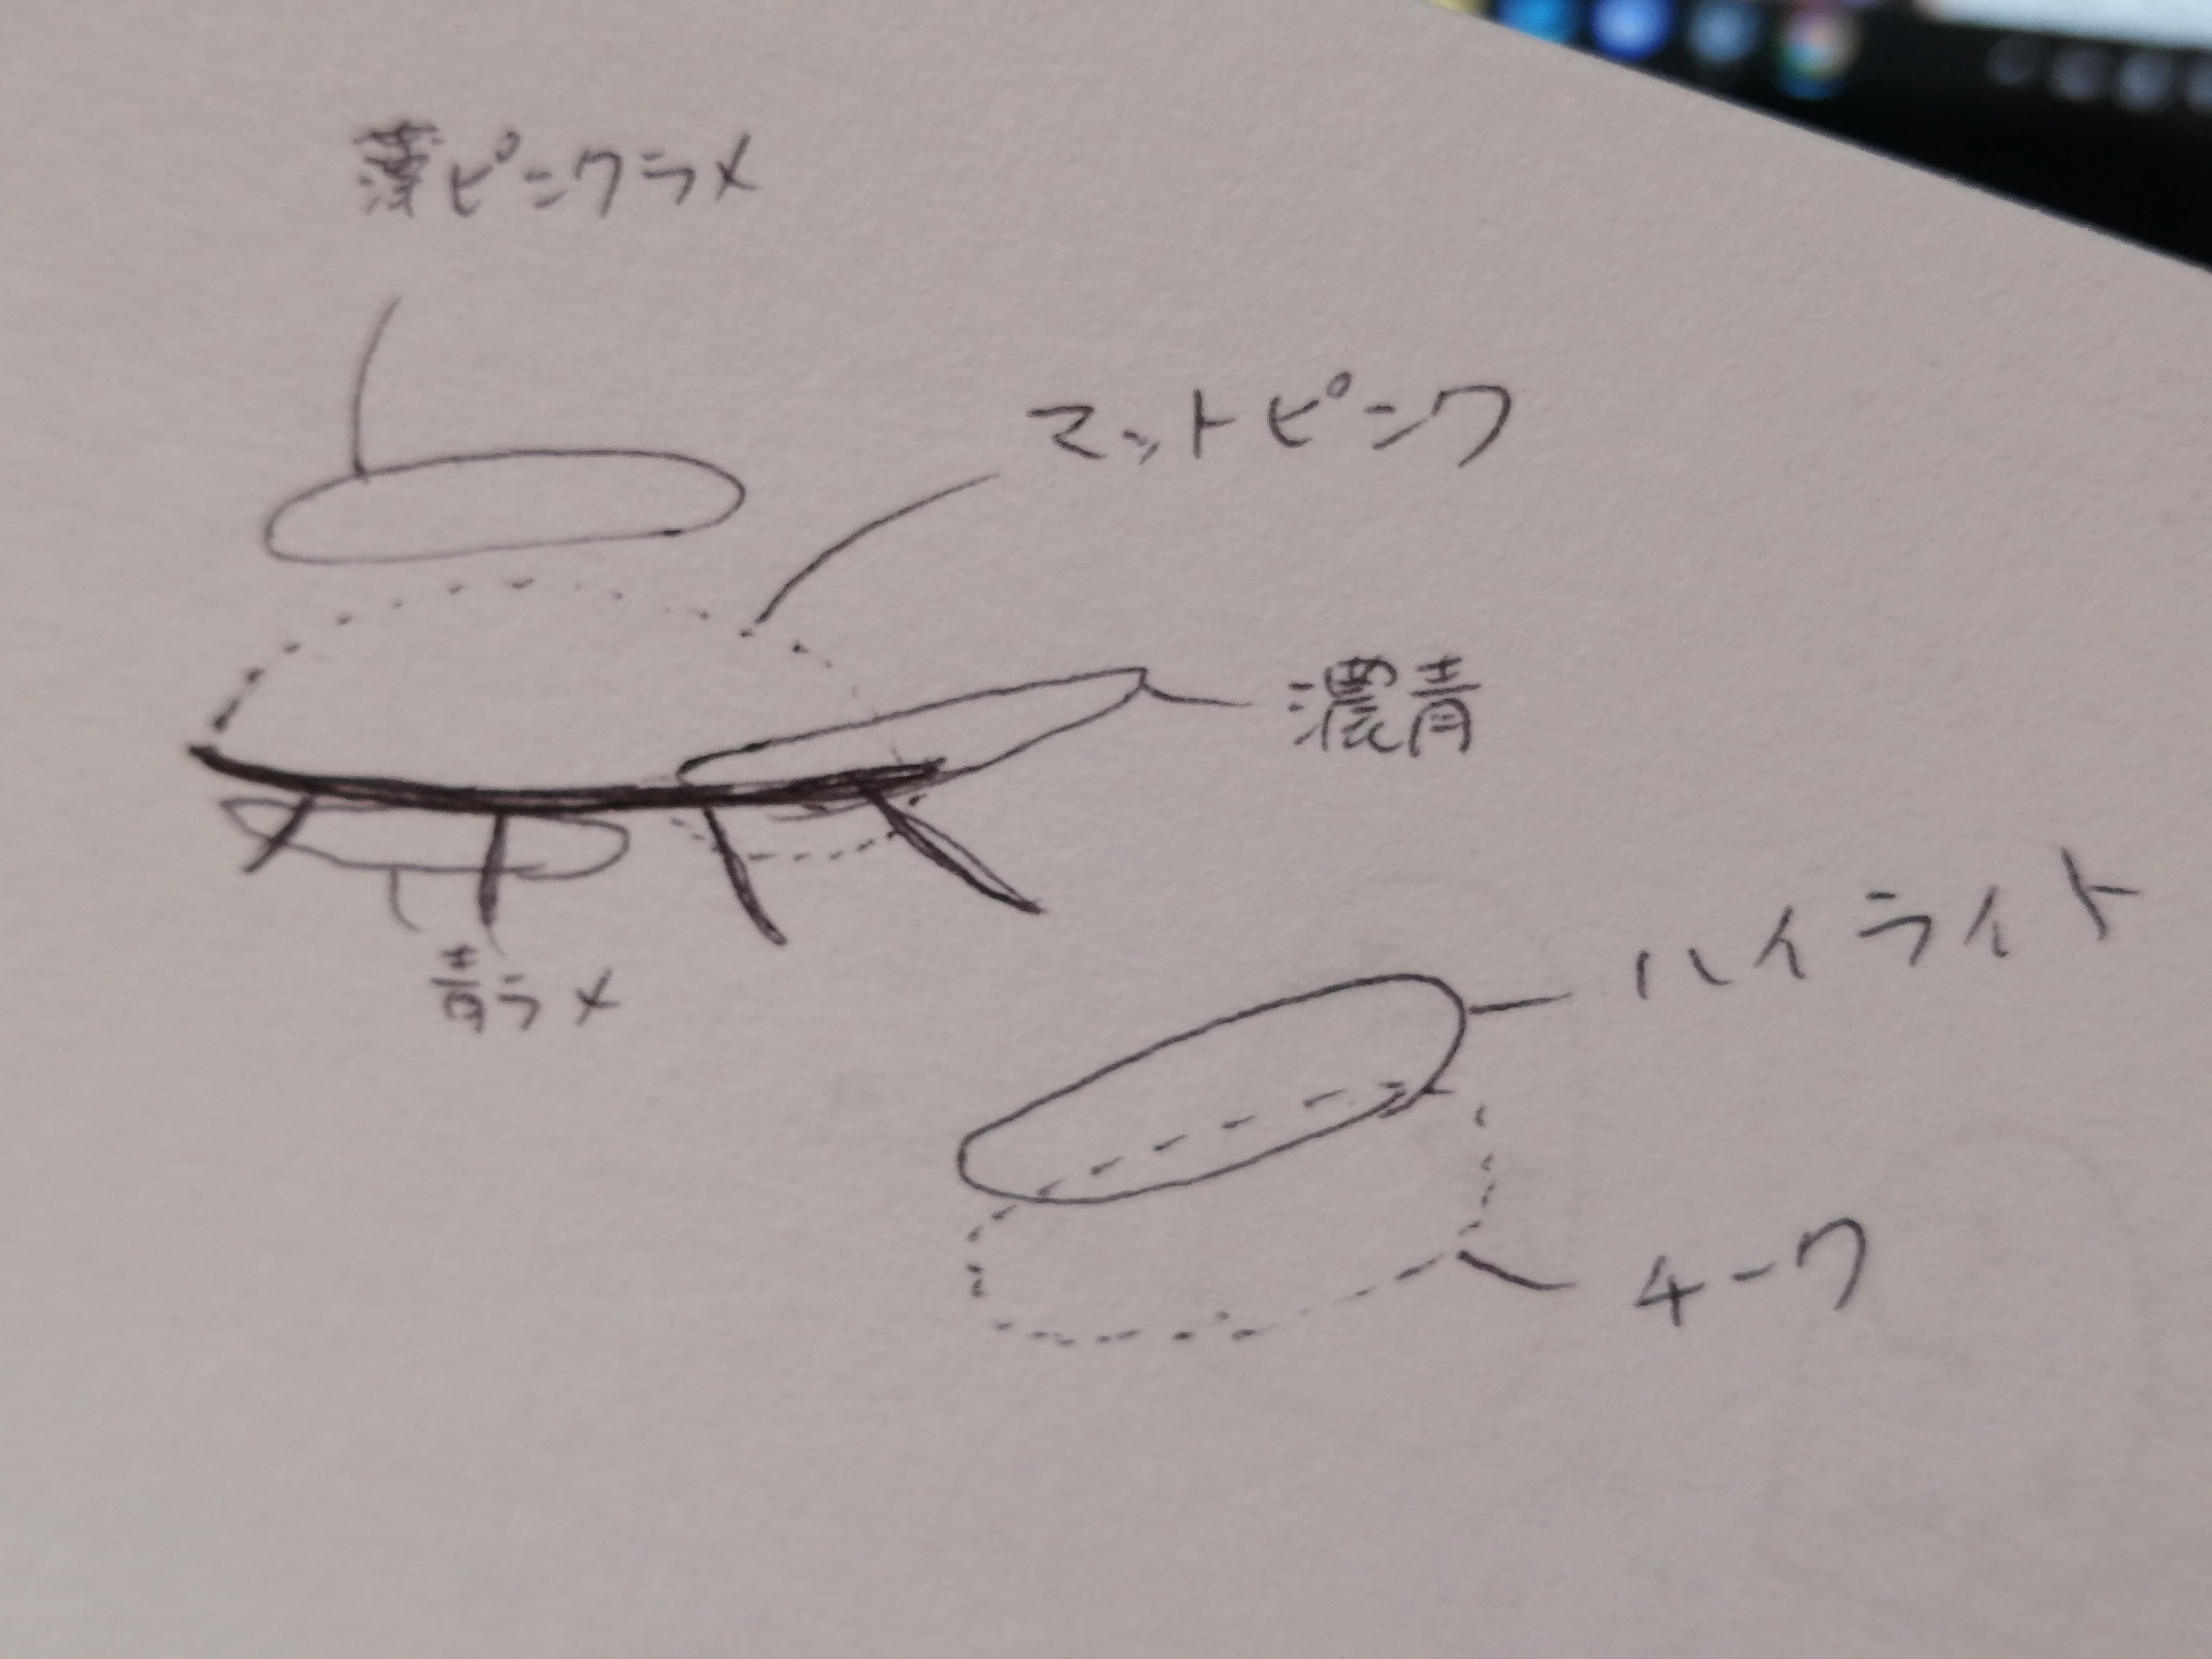 薄ピンクラメ
マットピンク
濃青
青ラメ
ハイライト
チーク